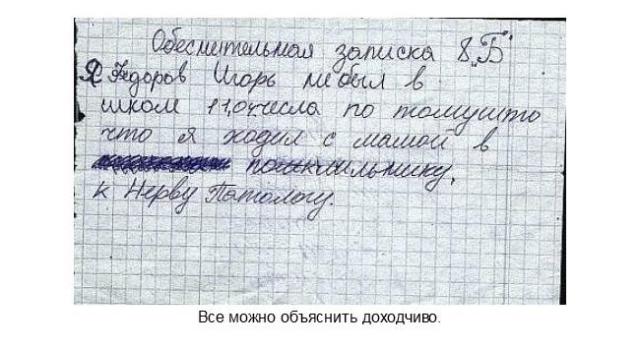 Обеснительная записка 8 „Б"
Я Федоров Игорь небыл в
школи 11,04 числа по томушто
что я ходил с мамой в
к Нерву Патологу.
Все можно объяснить доходчиво.